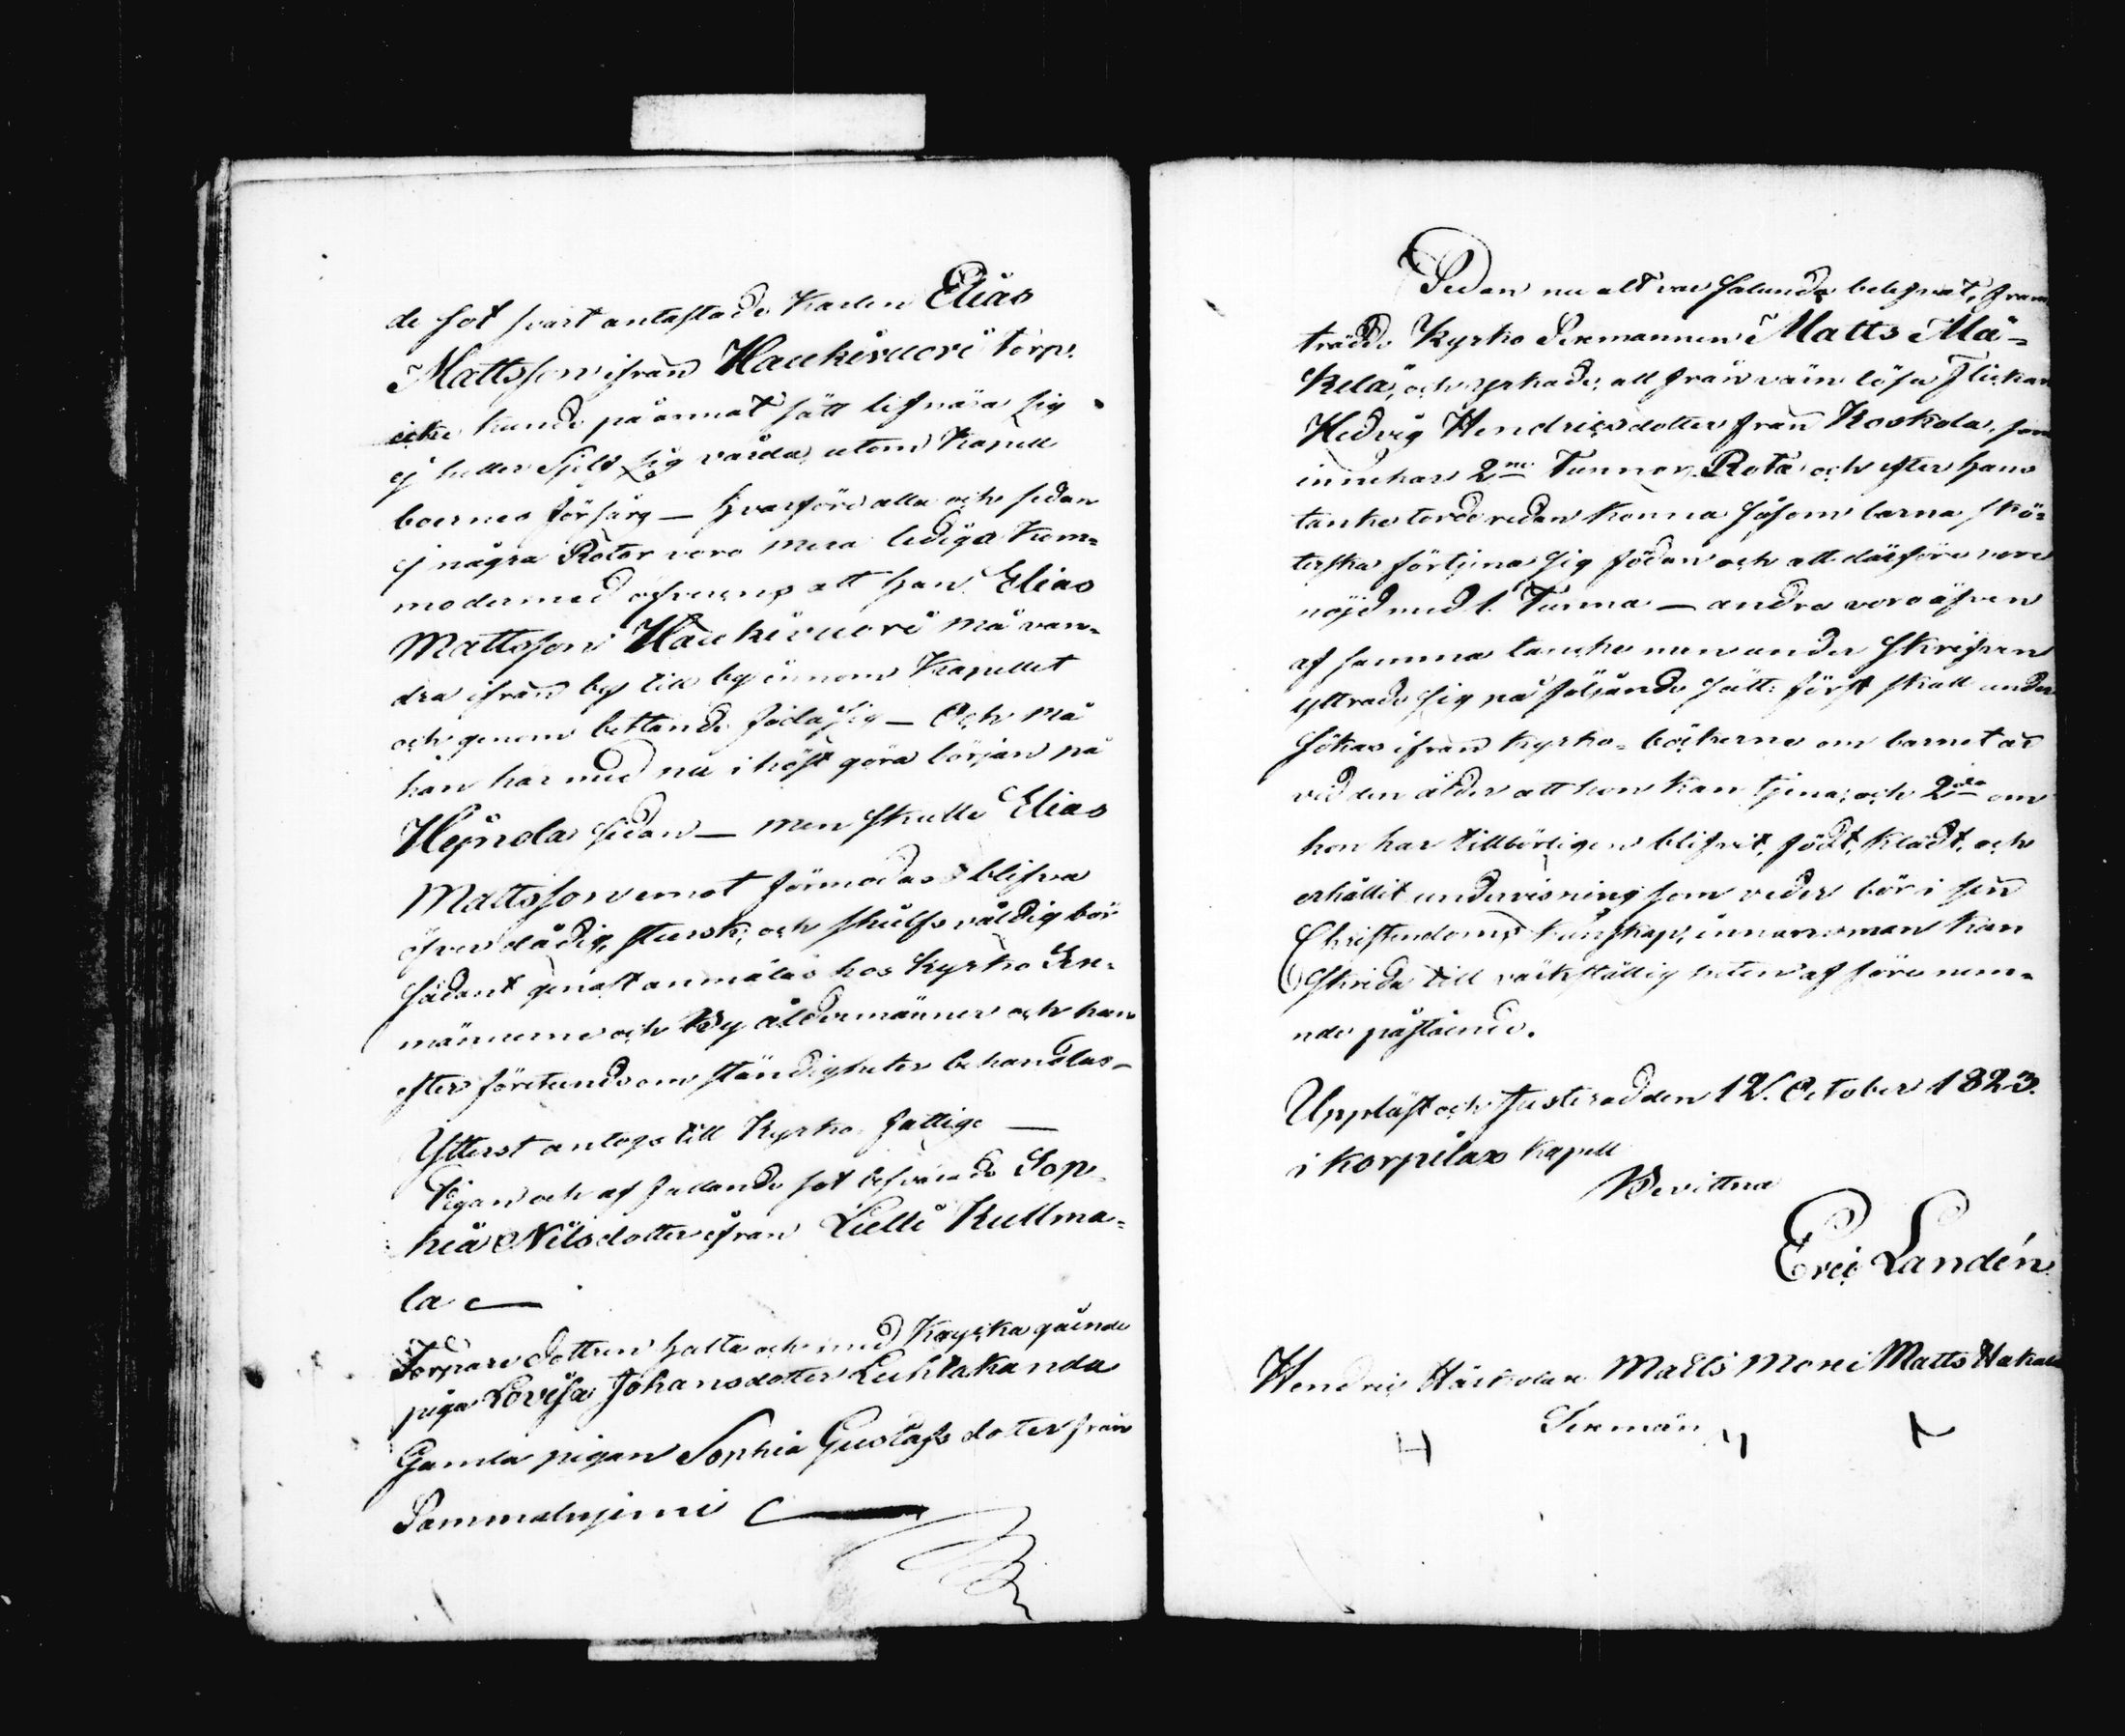 de sot svårt antastade Karlen Elias
Mattsson ifrån Haukivuori torp.
icke kunde på annat sätt lifnära sig
ej heller Sjelf sig vårda, utom Kapell
boernes försorg — hvarföre alla och sedan
ej några Rotar voro mera lediga Kom-
mo dermed öfverens att han Elias
Mattsson Haukivuori må van-
dra ifrån by till by innom Kapellet
och genom bettlande föda sig — Och må
han här med nu i höst göra början på
Hejnola sidan — men skulle Elias
Mattsson emot förmodan blifva
öfverdådig, stursk, och sjelfsvåldig bör
sådant genast anmälas hos Kyrko Sex-
männerne och By åldermänner och han
efter förekommande omständigheter behandlas —
Ytterst antogs till Kyrko fattige —
Pigan och af fallande sot besvärade Sop-
hia Nilsdotter ifrån Lilli Kullma-
la —
Torpare dottren halta och med Kryckia gående
piga Lovisa Johansdotter Luhtakanda
Gamla pigan Sophia Gustafs dotter från
Sammalnjemi —
Sedan nu alt var sålunda belefvat, fram
trädde Kyrko Sexmannen Matts Mä-
kelä, och yrkade, att från värnlösa Flickan
Hedvig Hendricsdotter från Koskola, som
innehar 2ne Tunnor Rota och efter hans
tanke torde redan kunna såsom barna skö-
terska förtjena sig födan och att därföre vore
nöjd med 1. Tunna — andra voro äfven
af samma tancke men under skrifven
yttrade sig på föliande sätt: först skall under
sökas ifrån kyrko-böckerne om barnet är
vid den ålder att hon kan tjena, och 2do om
hon har tillbörligen blifvit, födt, klädt, och
erhållit undervisning som veder bör i sin
Christendoms kunskap, innan man kan
skrida till värkställigheten af före nem-
nde påstående.
Uppläst och Justerad den 12. October 1823.
i Korpilax Kapell
Bevittna
Eric Landén
Hendric Häckolax Matts Moxi Matts Hakala
Sexmän